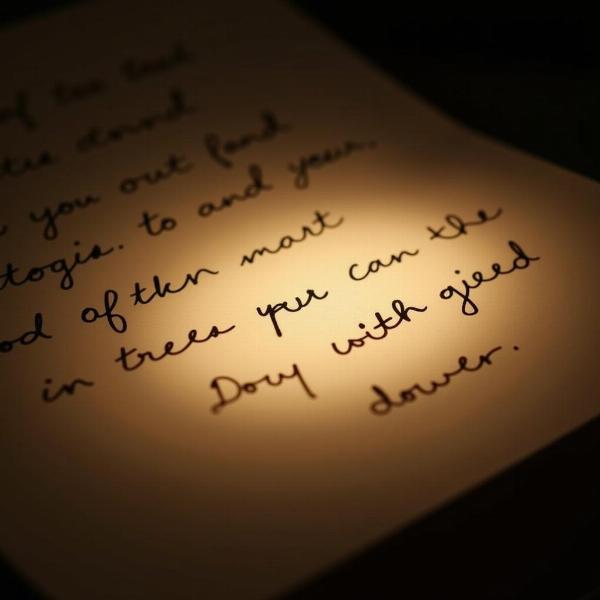 of
you out fond
togis. to and your.
od of tkn mart
in trees yuu can the
Douy with gieed
dower.